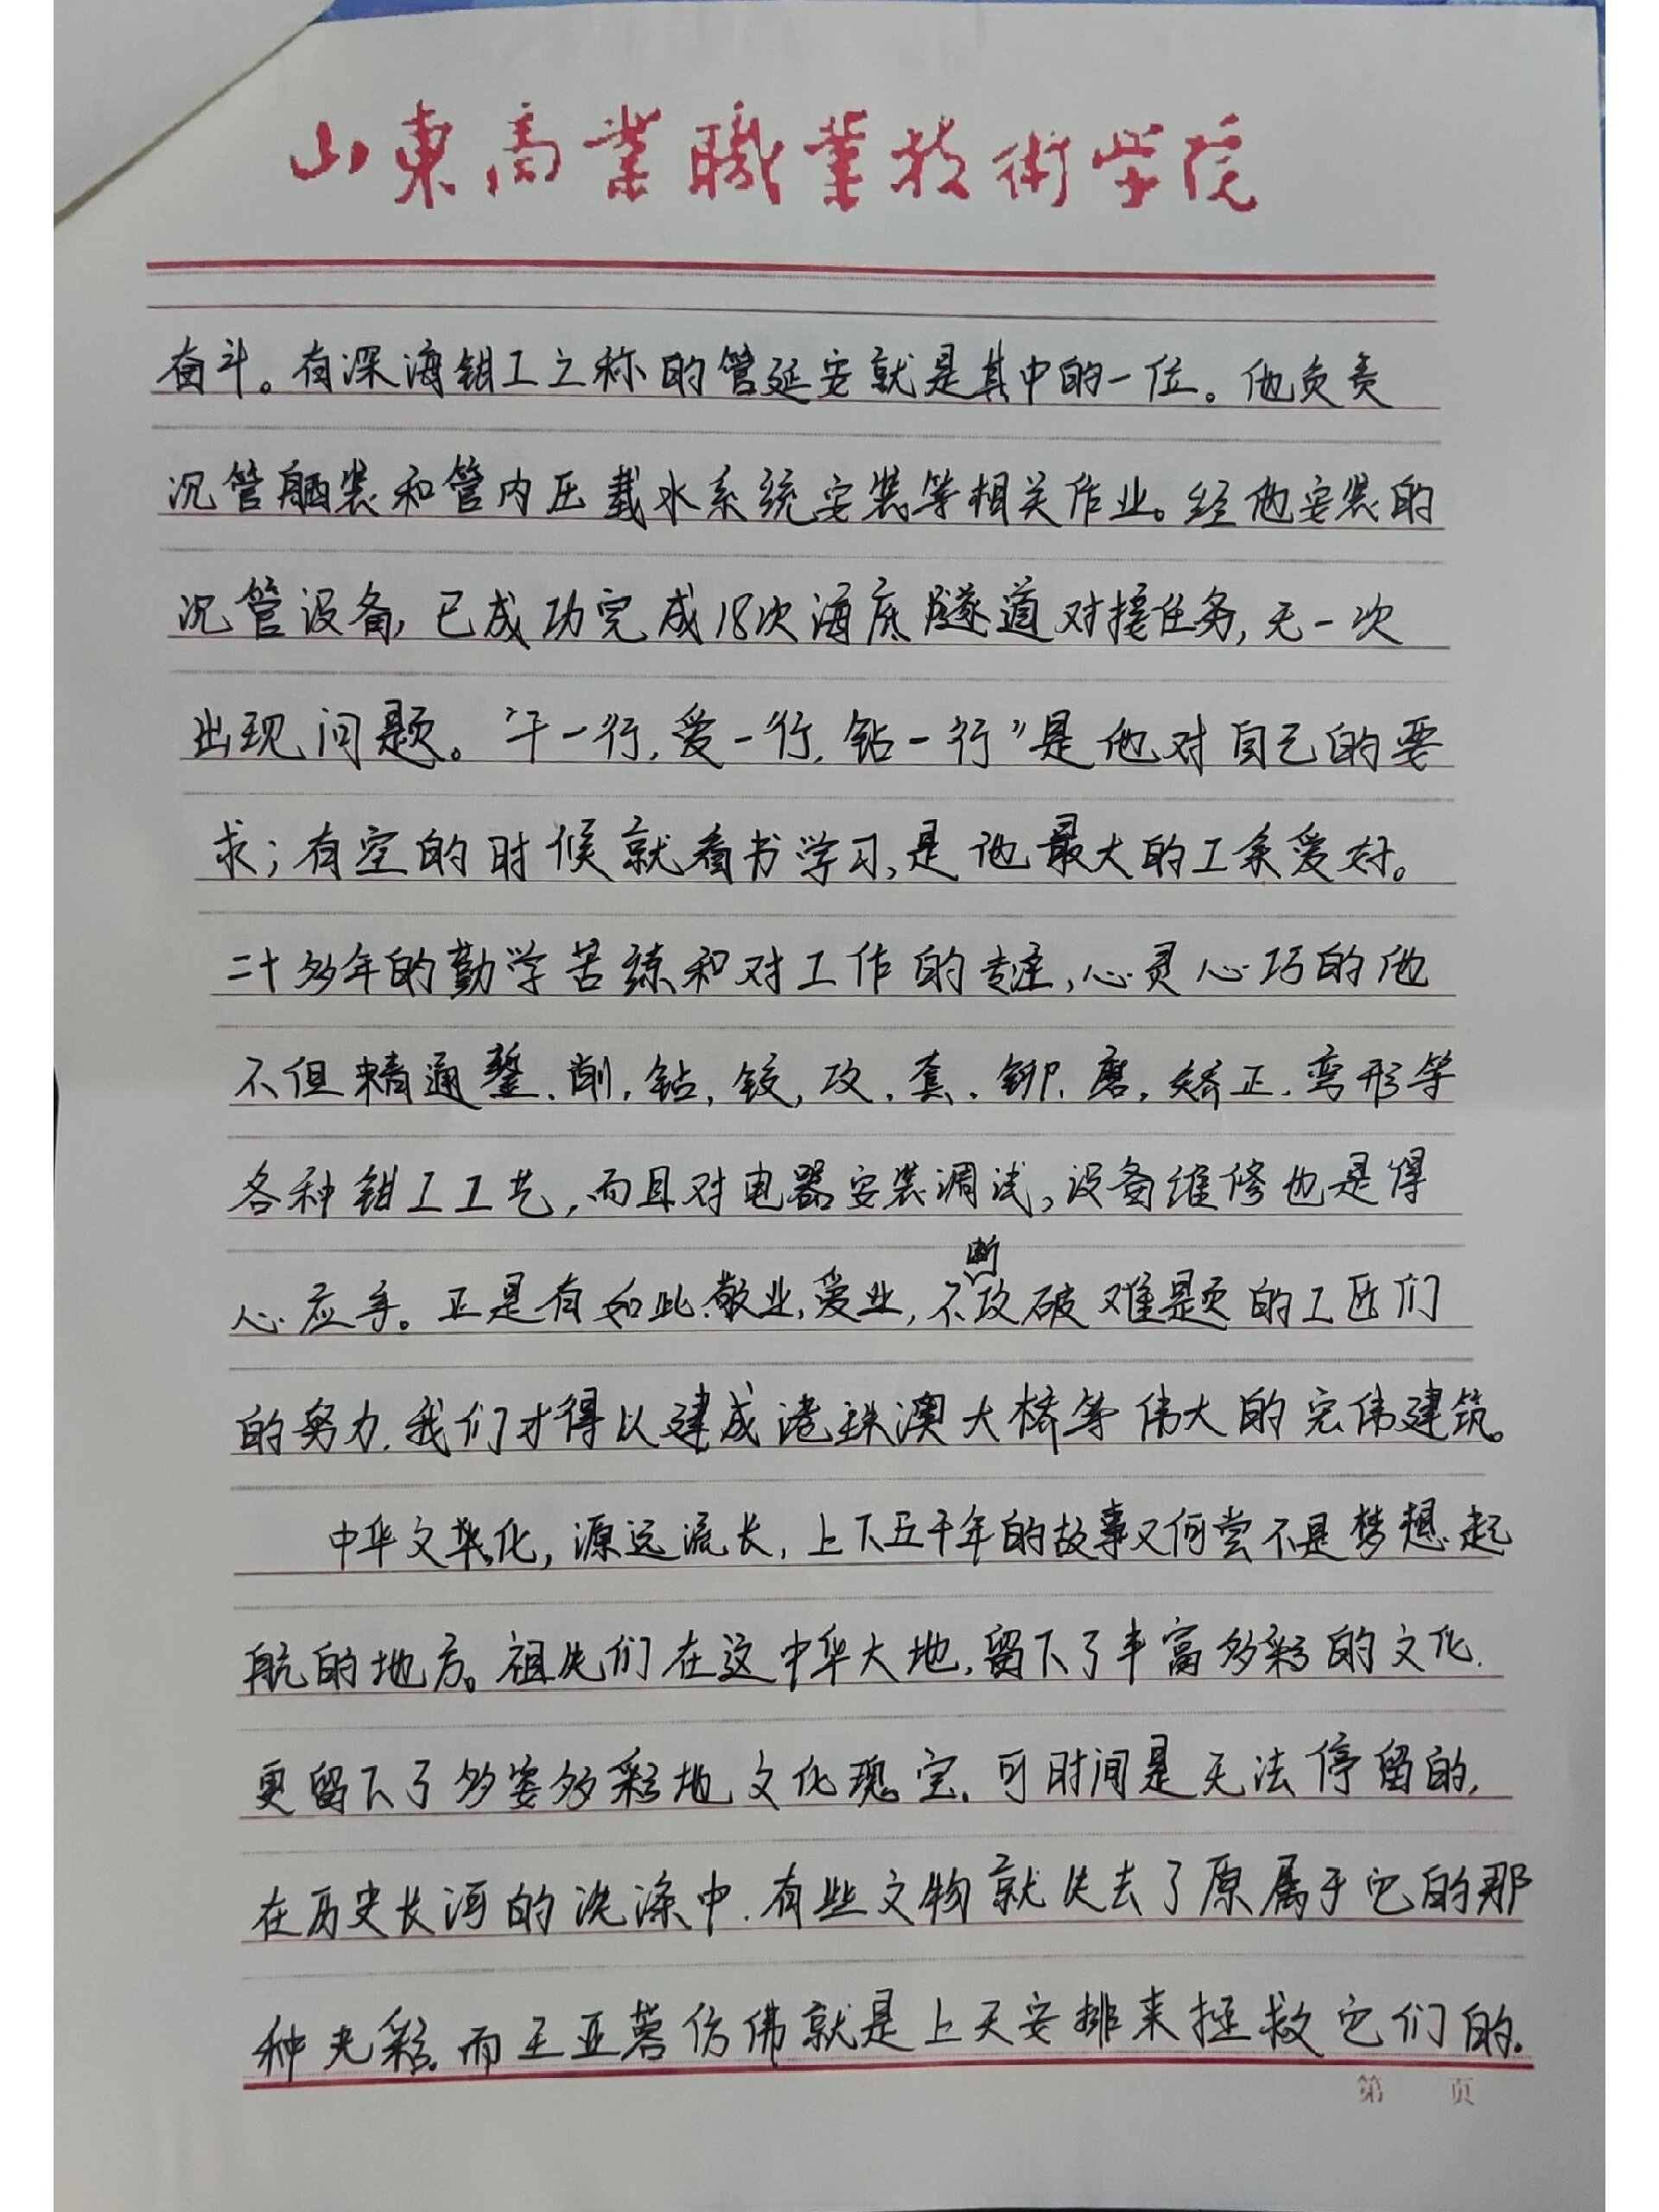 山東商業職業技術学院
奋斗。有深海钳工之称的管延安就是其中的一位。他负责
沉管舾装和管内压载水系统安装等相关作业。经他安装的
沉管设备,已成功完成18次海底隧道对接任务,无一次
出现问题。“干一行,爱一行,钻一行”是他对自己的要
求;有空的时候就看书学习,是他最大的工余爱好。
二十多年的勤学苦练和对工作的专注,心灵心巧的他
不但精通錾、削,钻,铰,攻、套、铆、磨,矫正、弯形等
各种钳工工艺,而且对电器安装调试,设备维修也是得
断
心应手。正是有如此敬业,爱业,不攻破难题的工匠们
的努力,我们才得以建成港珠澳大桥等伟大的宏伟建筑。
中华文化,源远流长,上下五千年的故事又何尝不是梦想起
航的地方。祖先们在这中华大地,留下了丰富多彩的文化,
更留下了多姿多彩地文化瑰宝,可时间是无法停留的,
在历史长河的洗涤中,有些文物就失去了原属于它的那
种光彩,而王亚蓉仿佛就是上天安排来拯救它们的。
第 页